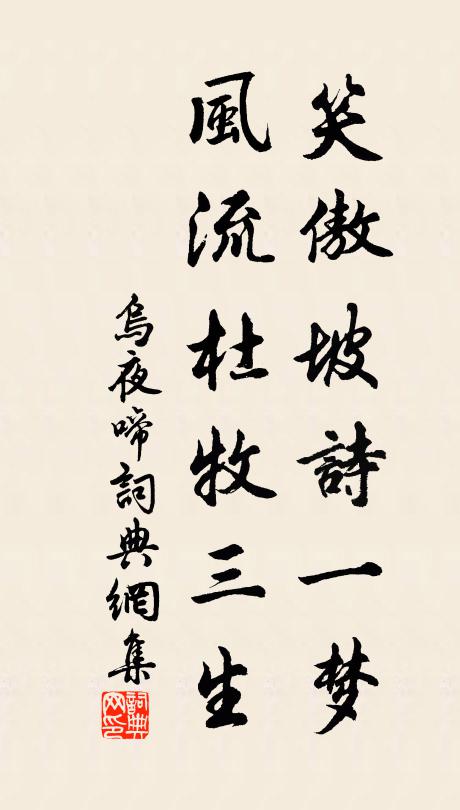 笑傲坡詩一梦
風流杜牧三生
烏夜啼詞典網集
詞典
网印